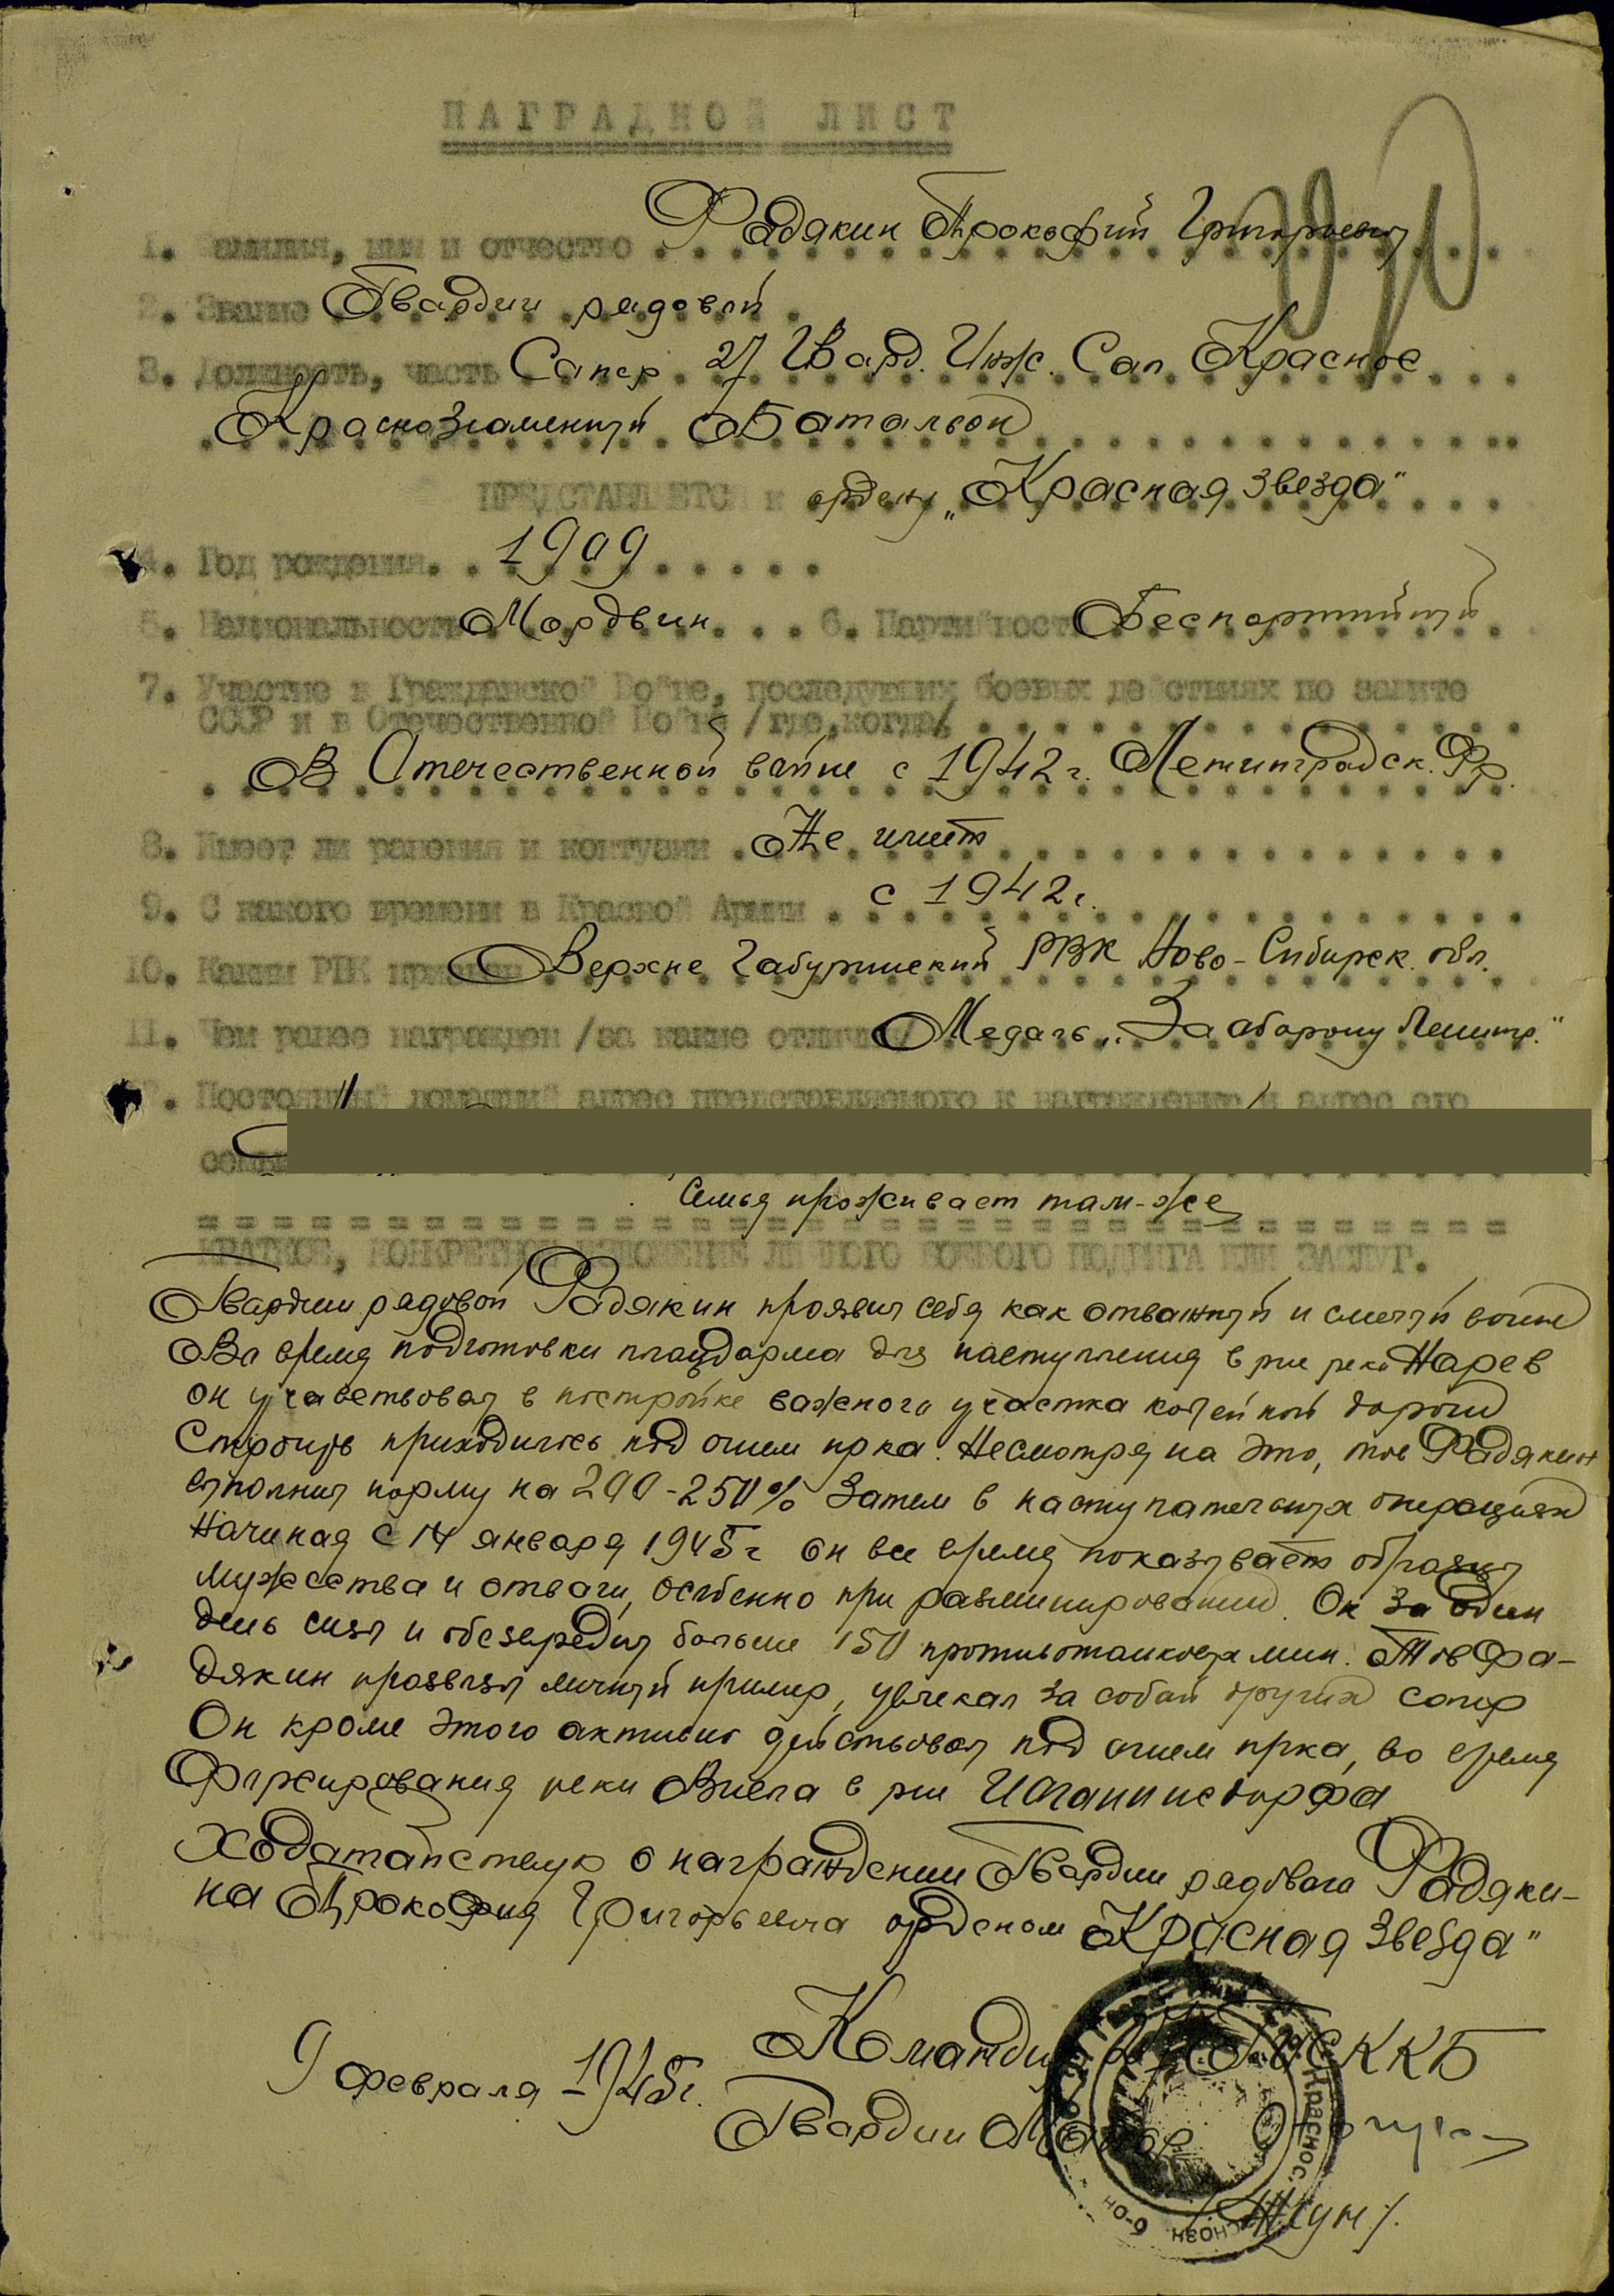 НАГРАДНОЙ ЛИСТ
1. Фамилия, имя и отчество Фадякин Прокофий Григорьевич
2. Звание Гвардии рядовой
3. Должность, часть Сапер 27 Гвард. Инж. Сап. Красно с
Краснознаменный Батальон
ПРЕДСТАВЛЯЕТСЯ к ордену „Красная звезда"
4. Год рождения 1909
5. Национальность Мордвин 6. Партийность Беспартийный
7. Участие в Гражданской Войне, последующих боевых действиях по защите
СССР и в Отечественной Войне /где, когда/
В Отечественной войне с 1942 г. Ленинградск. Фр.
8. Имеет ли ранения и контузии Не имеет
9. С какого времени в Красной Армии с 1942 г.
10. Каким РВК призван Верхне РВК Ново-Сибирск. обл.
11. Чем ранее награжден /за какие отличия/ Медаль „За оборону Ленингр."
12. Постоянный домашний адрес представляемого к награждению и адрес его
Семья проживает там-же
КРАТКОЕ, КОНКРЕТНОЕ ИЗЛОЖЕНИЕ ЛИЧНОГО БОЕВОГО ПОДВИГА ИЛИ ЗАСЛУГ.
Гвардии рядовой Фадякин проявил себя как отважный и смелый воин
Во время подготовки плацдарма для наступления в р-не реки Нарев
он участвовал в постройке важного участка колейной дороги
Строить приходилось под огнем пр-ка. Несмотря на это, тов Фадякин
выполнял норму на 200-250% Затем в наступательных операциях
Начиная с 14 января 1945 г он все время показывает образцы
мужества и отваги, особенно при разминировании. Он за один
день снял и обезвредил больше 150 противотанковых мин. Тов Фа-
дякин проявлял личный пример, увлекал за собой других сапер
Он кроме этого активно действовал под огнем пр-ка, во время
Форсирования реки Висла в р-не Иоганнисдорфа
Ходатайствую о награждении Гвардии рядового Фадяки-
на Прокофия Григорьевича орденом „Красная звезда"
9 февраля 1945 г. Командир 27 ГИСККБ
Гвардии Майор
/Жун/.